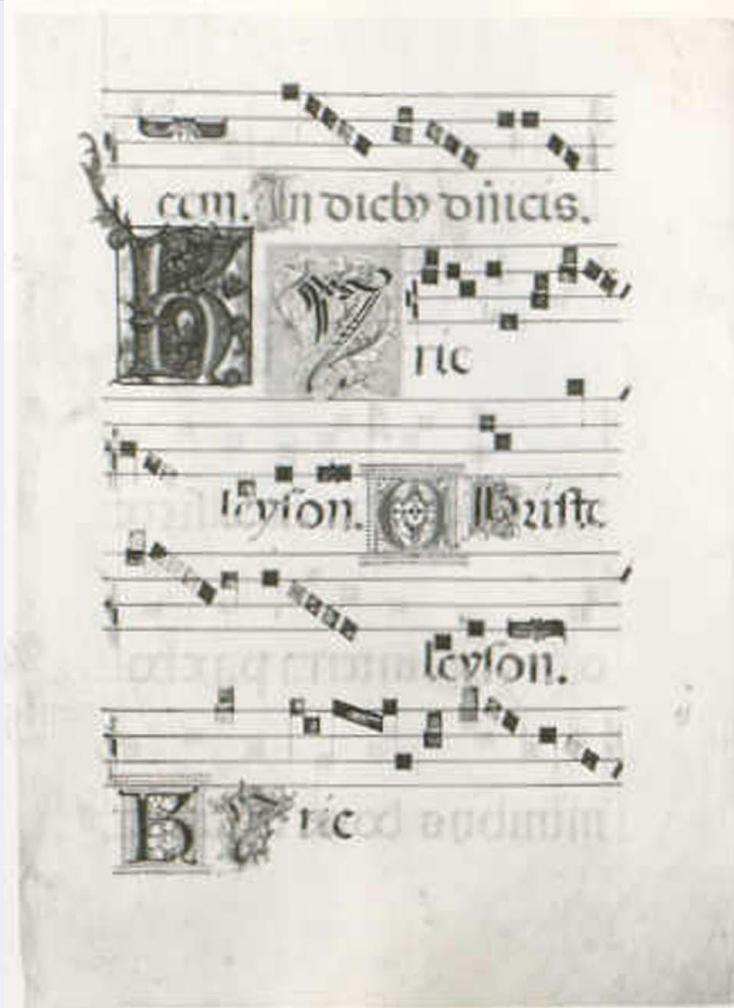 cem. In dieb₉ dñicis.
KYrie
leyson. CHriste
leyson.
KYrie